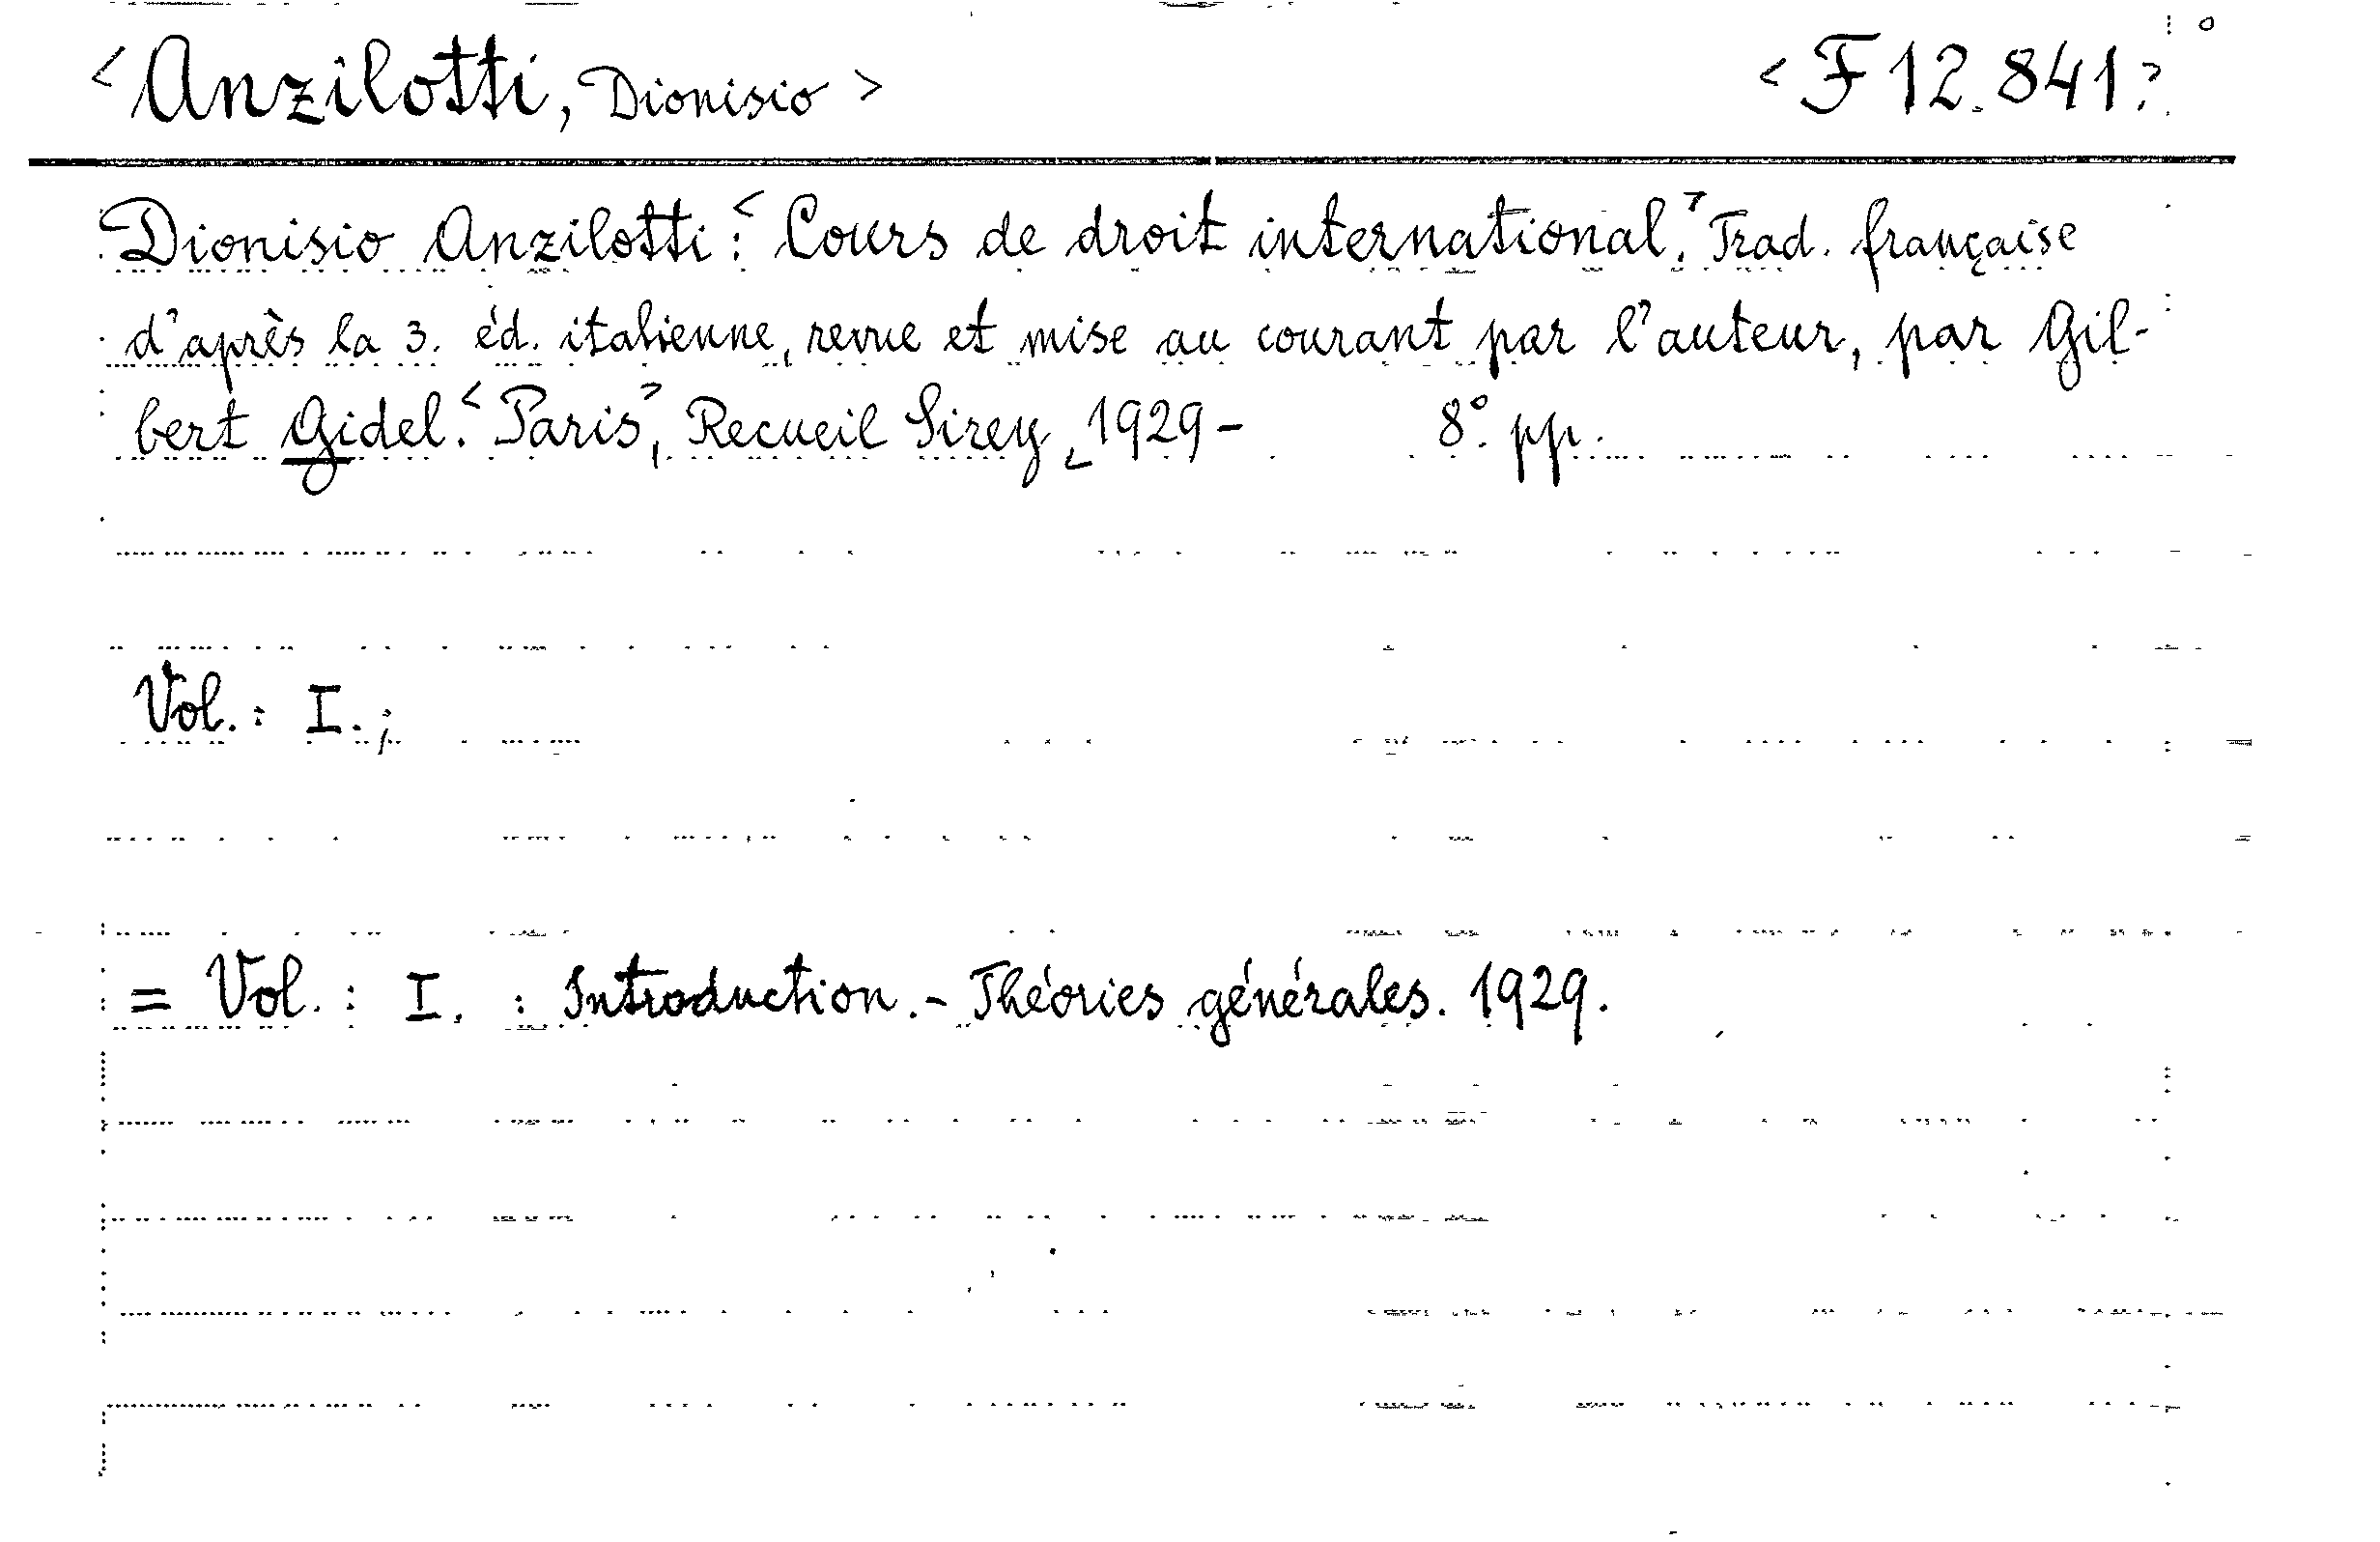 <Anzilotti, Dionisio> <F 12.841>
Dionisio Anzilotti: <Cours de droit international.> Trad. française
d'après la 3. éd. italienne, revue et mise au courant par l'auteur, par Gil-
bert Gidel. <Paris>, Recueil Sirey, 1929- 8°. pp.
Vol.: I.;
= Vol.: I. : Introduction. - Théories générales. 1929.